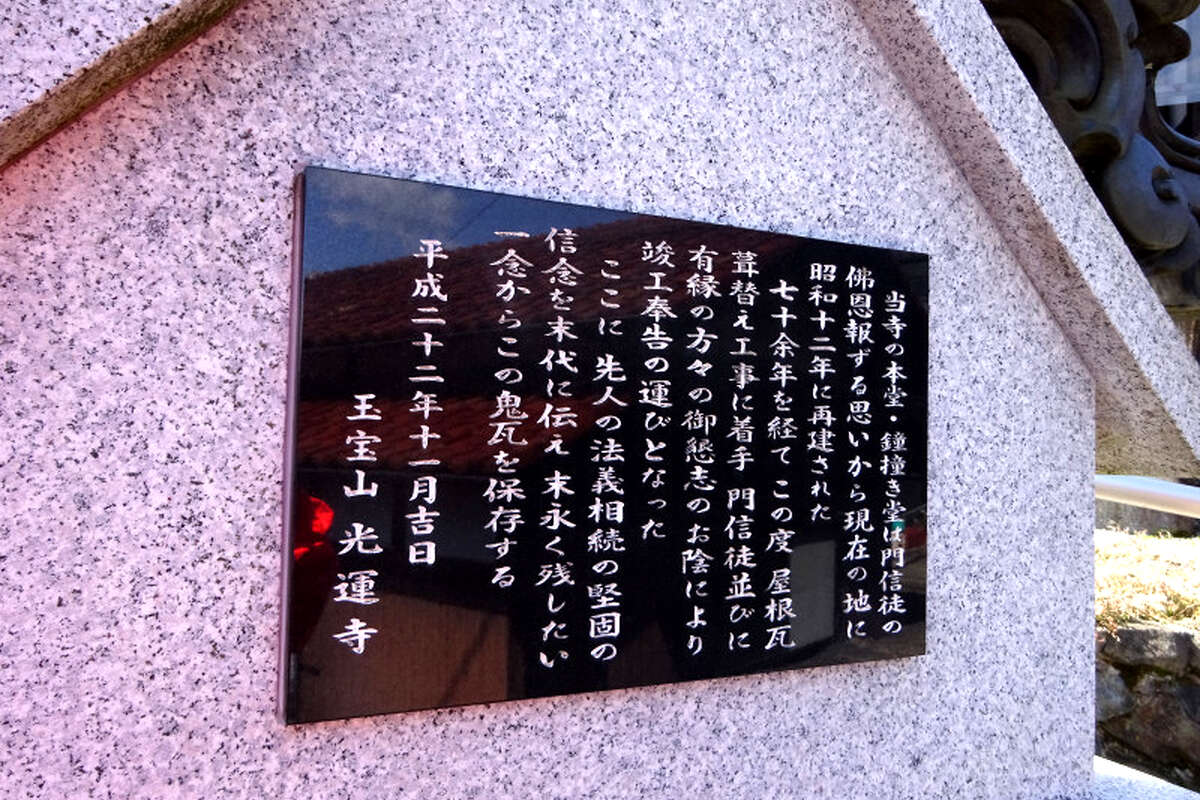 当寺の本堂・鐘撞き堂は門信徒の
佛恩報ずる思いから現在の地に
昭和十二年に再建された
七十余年を経て この度 屋根瓦
葺替え工事に着手 門信徒並びに
有縁の方々の御懇志のお陰により
竣工奉告の運びとなった
ここに 先人の法義相続の堅固の
信念を末代に伝え 末永く残したい
一念からこの鬼瓦を保存する
平成二十二年十一月吉日
玉宝山 光運寺